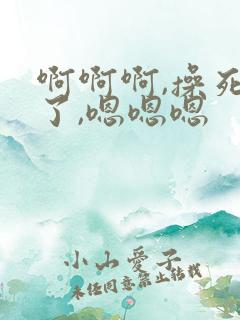 啊啊啊,操死
了,嗯嗯嗯
小山愛子
未经同意禁止转载